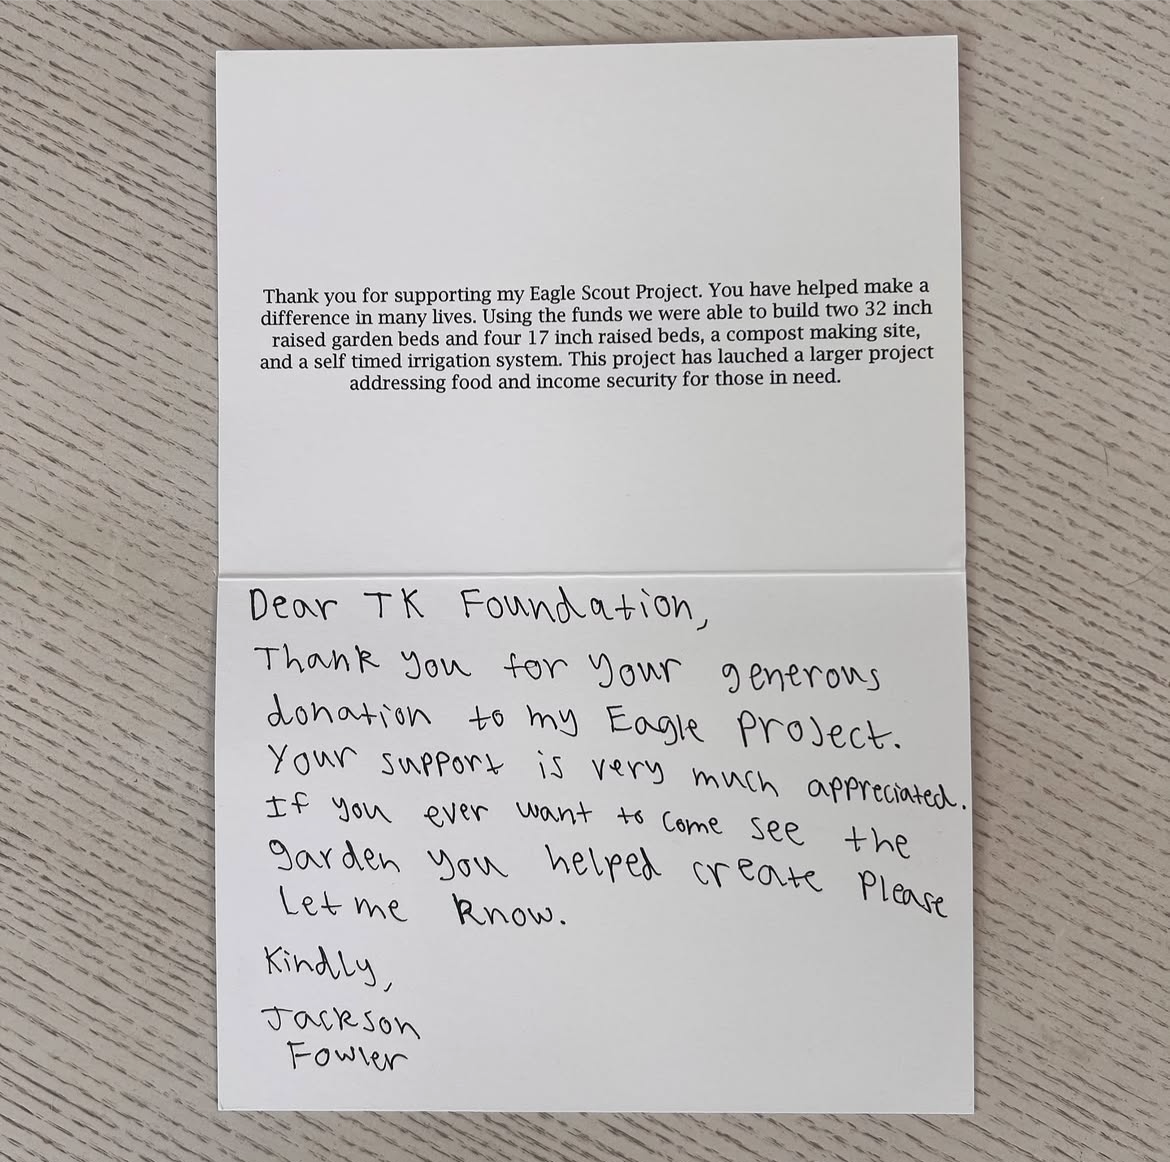 Thank you for supporting my Eagle Scout Project. You have helped make a
difference in many lives. Using the funds we were able to build two 32 inch
raised garden beds and four 17 inch raised beds, a compost making site,
and a self timed irrigation system. This project has lauched a larger project
addressing food and income security for those in need.
Dear TK Foundation,
Thank you for your generous
donation to my Eagle Project.
Your support is very much appreciated.
If you ever want to come see the
garden you helped create Please
Let me know.
Kindly,
Jackson
Fowler